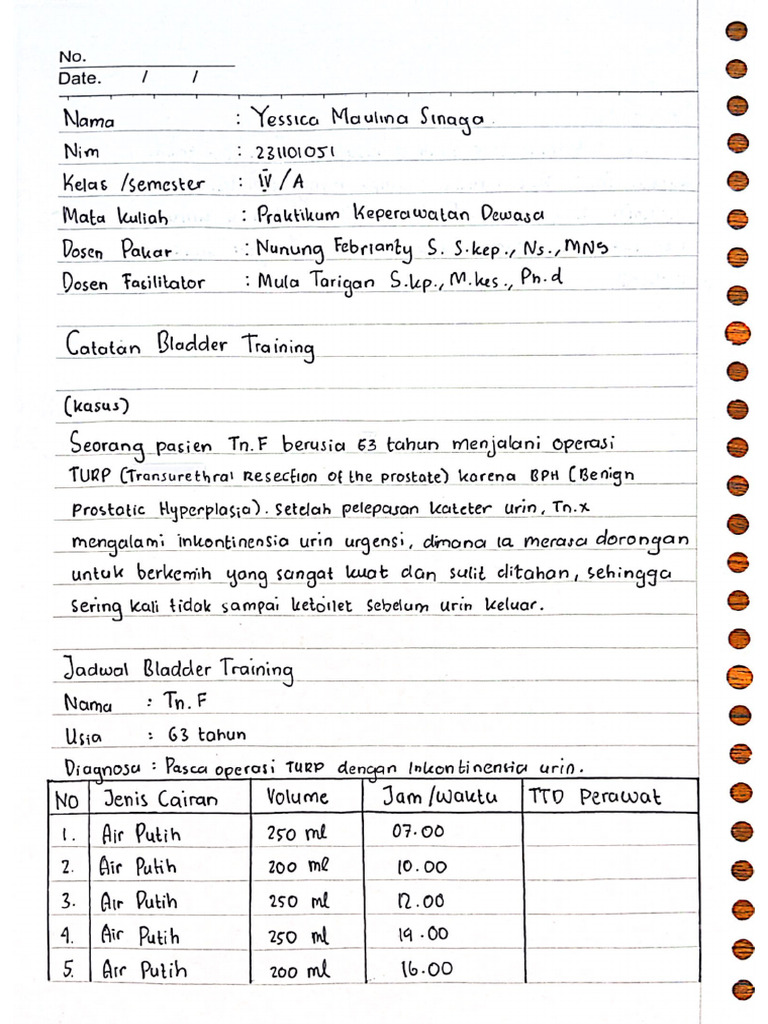 No.
Date. / /
Nama : Yessica Maulina Sinaga
Nim : 231101051
Kelas /semester : IV / A
Mata kuliah : Praktikum Keperawatan Dewasa
Dosen Pakar : Nunung Febrianty S. S.kep., Ns., MNS
Dosen Fasilitator : Mula Tarigan S.kp., M.kes., Ph.d
Catatan Bladder Training
(kasus)
Seorang pasien Tn.F berusia 63 tahun menjalani operasi
TURP (Transurethral Resection of the prostate) karena BPH (Benign
Prostatic Hyperplasia). Setelah pelepasan kateter urin, Tn.x
mengalami inkontinensia urin urgensi, dimana ia merasa dorongan
untuk berkemih yang sangat kuat dan sulit ditahan, sehingga
sering kali tidak sampai ketoilet sebelum urin keluar.
Jadwal Bladder Training
Nama : Tn. F
Usia : 63 tahun
Diagnosa : Pasca operasi TURP dengan Inkontinensia urin.
No Jenis Cairan Volume Jam /Waktu TTD Perawat
1. Air Putih 250 ml 07.00
2. Air Putih 200 ml 10.00
3. Air Putih 250 ml 12.00
4. Air Putih 250 ml 14.00
5. Air Putih 200 ml 16.00